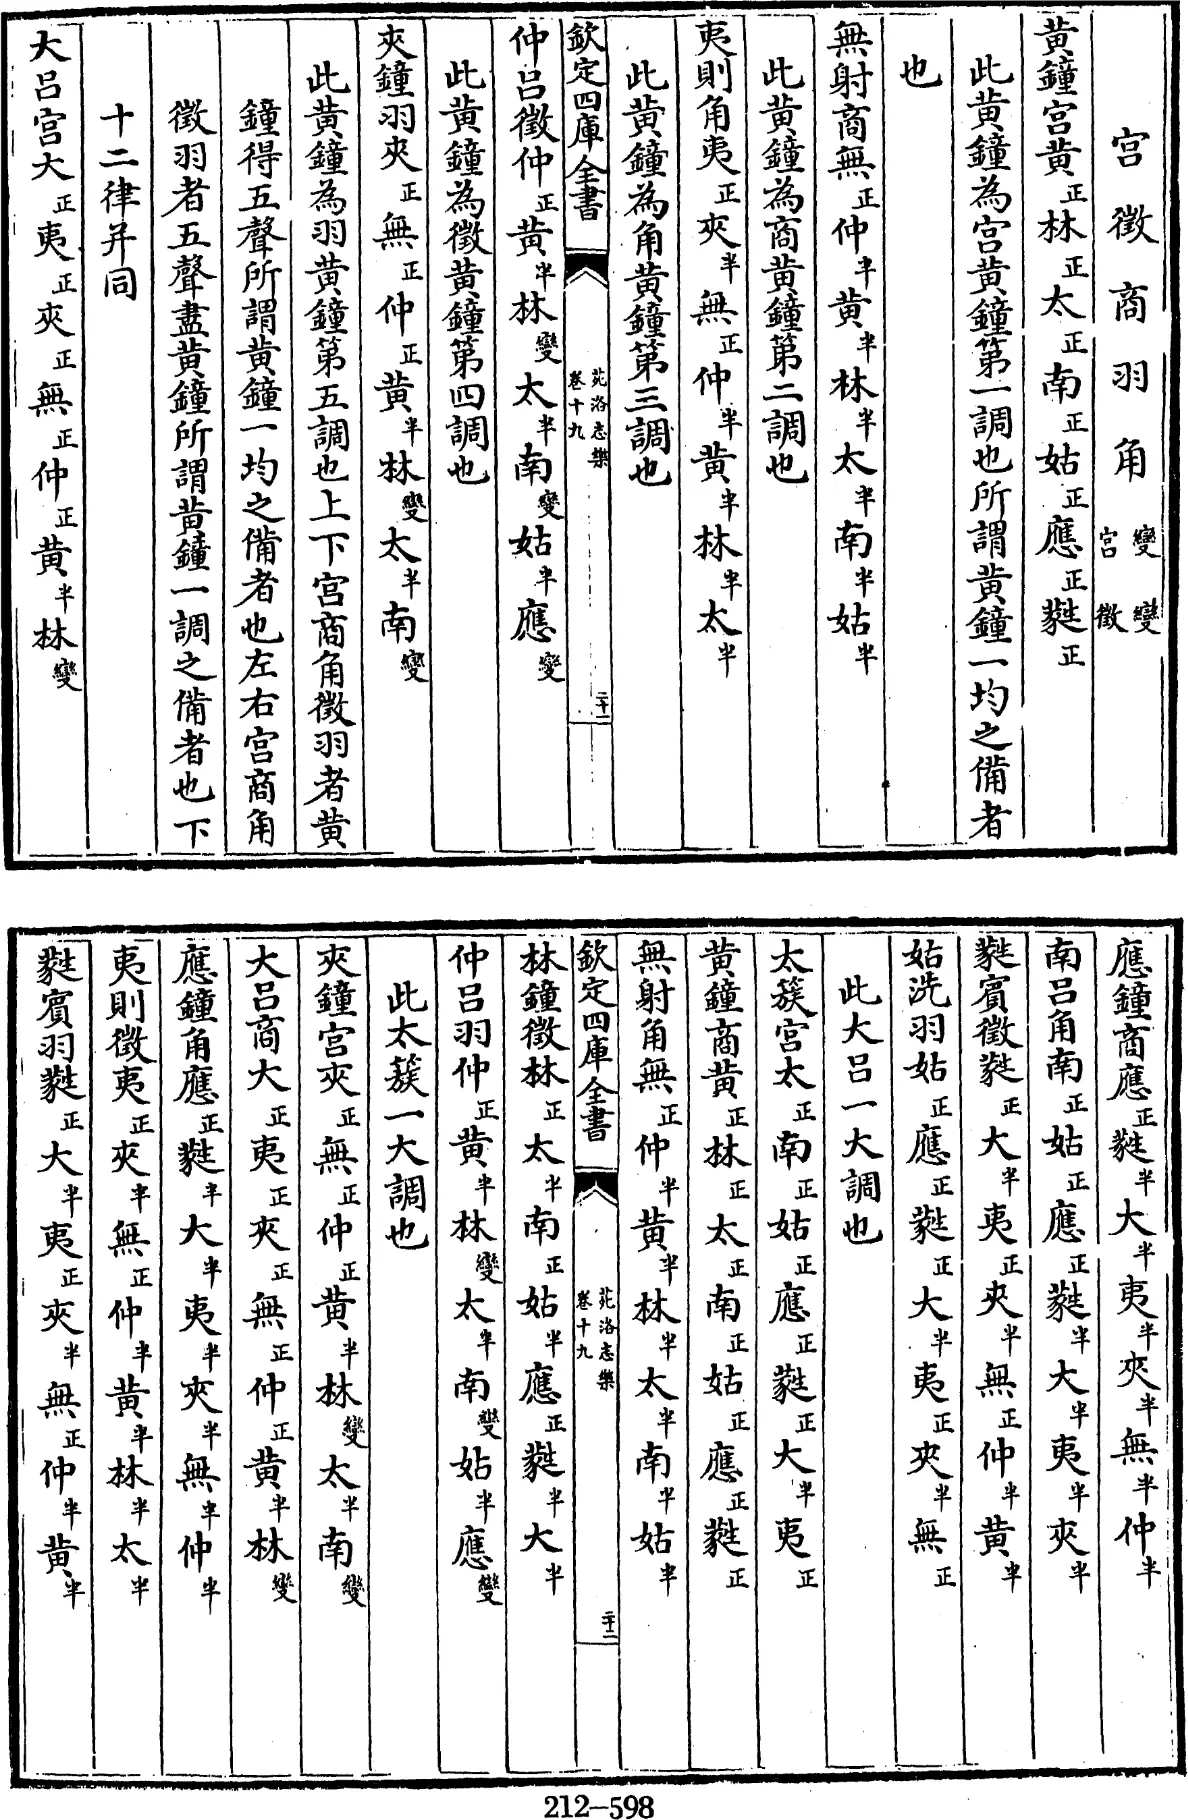 宫徵商羽角變宫變徵
黄鐘宫黄正林正太正南正姑正應正蕤正
此黄鐘為宫黄鐘第一調也所謂黄鐘一均之備者
也
無射商無正仲半黄半林半太半南半姑半
此黄鐘為商黄鐘第二調也
夷則角夷正夾半無正仲半黄半林半太半
此黄鐘為角黄鐘第三調也
欽定四庫全書
苑洛志樂
卷十九
二十一
仲吕徵仲正黄半林變太半南變姑半應變
此黄鐘為徵黄鐘第四調也
夾鐘羽夾正無正仲正黄半林變太半南變
此黄鐘為羽黄鐘第五調也上下宫商角徵羽者黄
鐘得五聲所謂黄鐘一均之備者也左右宫商角
徵羽者五聲盡黄鐘所謂黄鐘一調之備者也下
十二律并同
大吕宫大正夷正夾正無正仲正黄半林變
應鐘商應正蕤半大半夷半夾半無半仲半
南吕角南正姑正應正蕤半大半夷半夾半
蕤賓徵蕤正大半夷正夾半無正仲半黄半
姑洗羽姑正應正蕤正大半夷正夾半無正
此大吕一大調也
太簇宫太正南正姑正應正蕤正大半夷正
黄鐘商黄正林正太正南正姑正應正蕤正
無射角無正仲半黄半林半太半南半姑半
欽定四庫全書
苑洛志樂
卷十九
二十二
林鐘徵林正太半南正姑半應正蕤半大半
仲吕羽仲正黄半林變太半南變姑半應變
此太簇一大調也
夾鐘宫夾正無正仲正黄半林變太半南變
大吕商大正夷正夾正無正仲正黄半林變
應鐘角應正蕤半大半夷半夾半無半仲半
夷則徵夷正夾半無正仲半黄半林半太半
蕤賓羽蕤正大半夷正夾半無正仲半黄半
212-598